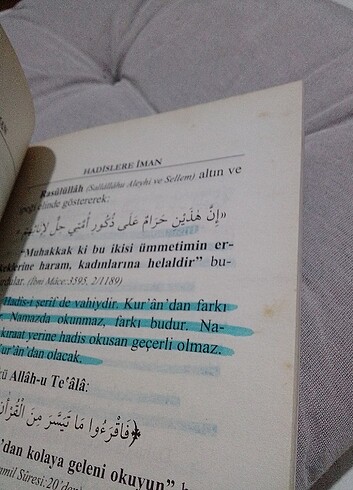 HADİSLERE İMAN
Rasûlüllâh (Sallâllâhu Aleyhi ve Sellem) altın ve
elinde göstererek:
«إِنَّ هَذَيْنِ حَرَامٌ عَلَى ذُكُورِ أُمَّتِي حِلٌّ لِإِنَاثِهِمْ»
"Muhakkak ki bu ikisi ümmetimin er-
keklerine haram, kadınlarına helaldir" bu-
(İbni Mâce:3595, 2/1189)
Hadis-i şerif de vahiydir. Kur'ân'dan farkı
Namazda okunmaz, farkı budur. Na-
kıraat yerine hadis okusan geçerli olmaz.
Kur'ân'dan olacak.
Allâh-u Te'âlâ:
﴿فَاقْرَءُوا مَا تَيَسَّرَ مِنَ الْقُرْآنِ
'dan kolaya geleni okuyun"
Sûresi:20'den